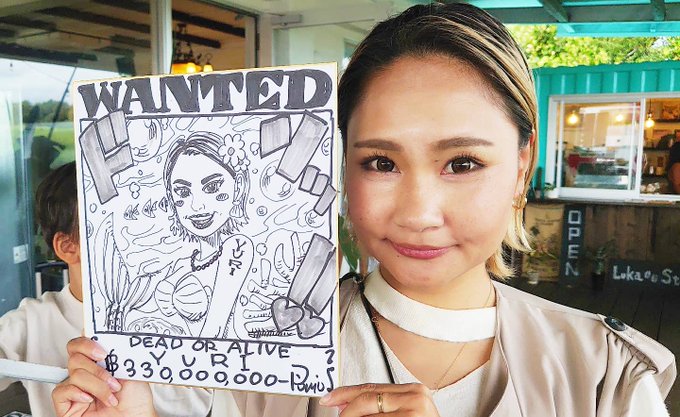 WANTED
YURI
DEAD OR ALIVE
YURI
$330,000,000-
OPEN